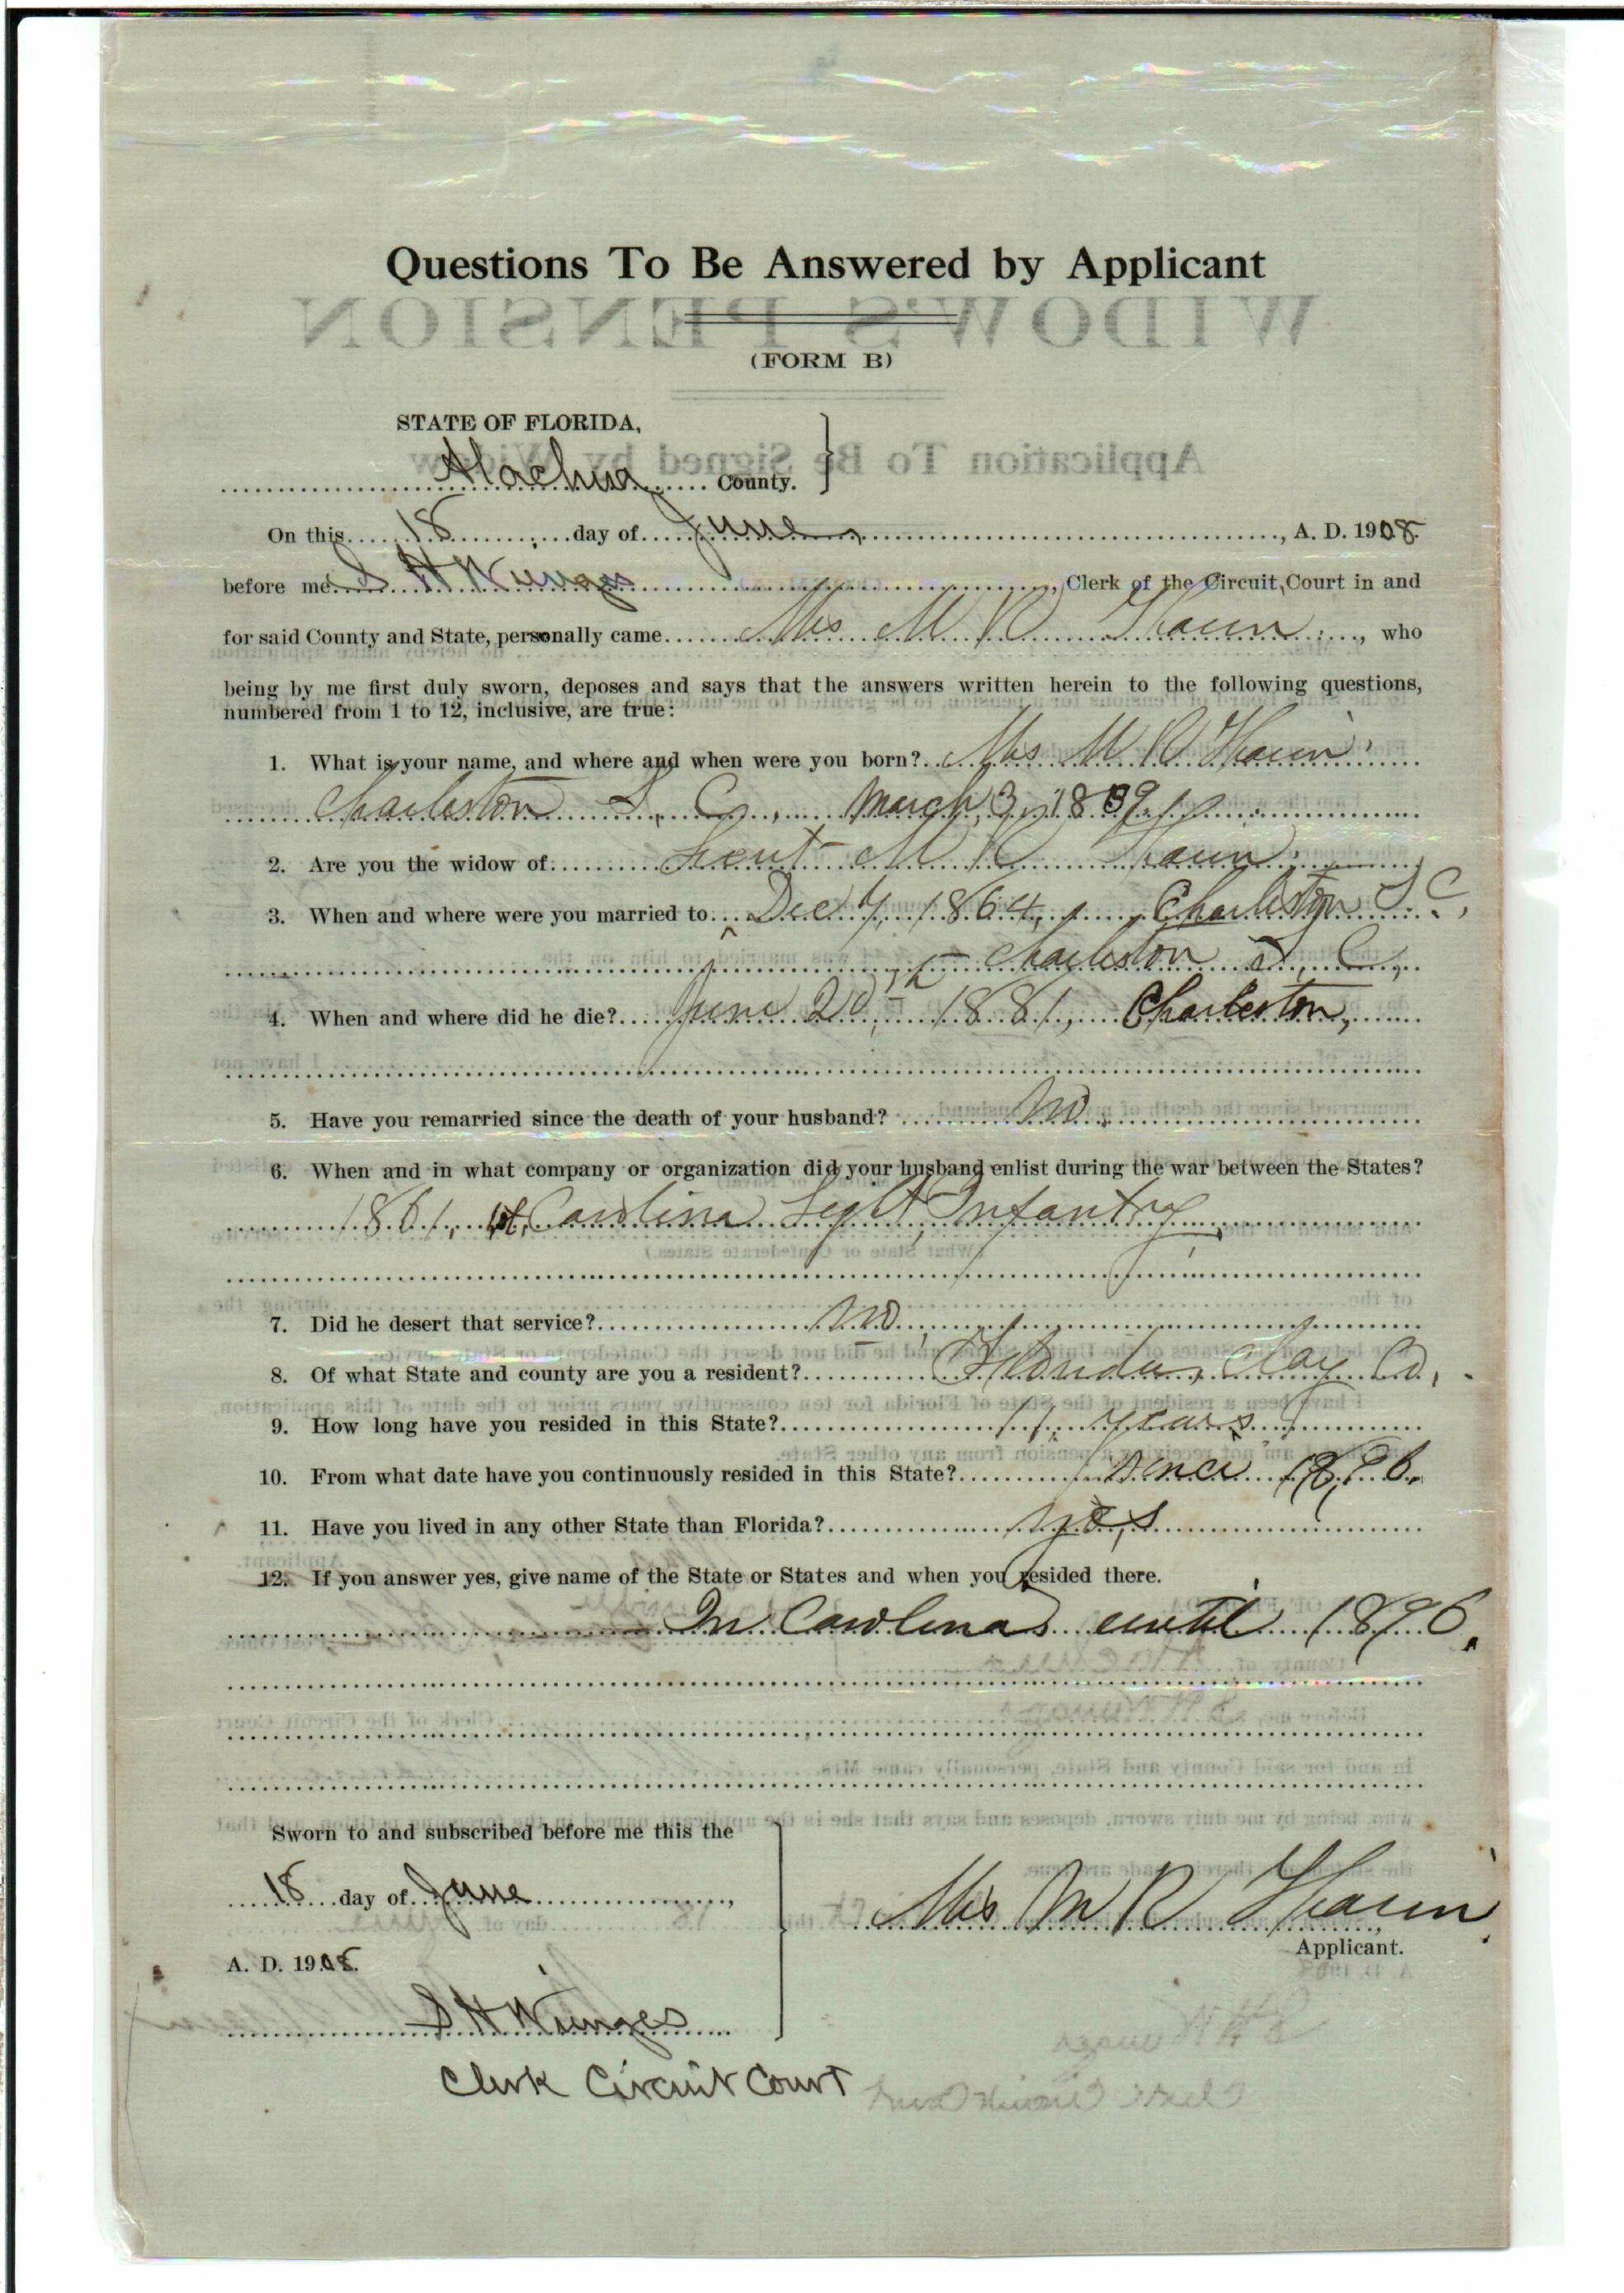 Questions To Be Answered by Applicant
WIDOW'S PENSION
(FORM B)
STATE OF FLORIDA,
Application To Be Signed by Widow
Alachua County.
On this 18 day of June, A. D. 1908.
before me S H Wienges, Clerk of the Circuit Court in and
for said County and State, personally came Mrs M R, who
being by me first duly sworn, deposes and says that the answers written herein to the following questions,
numbered from 1 to 12, inclusive, are true:
1. What is your name, and where and when were you born? Mrs M R
Charleston S. C., March 3, 1839
2. Are you the widow of Lieut M R
3. When and where were you married to Dec 7, 1864, Charleston S. C.,
Charleston S. C.,
4. When and where did he die? June 20th 1881, Charleston,
5. Have you remarried since the death of your husband? No.
6. When and in what company or organization did your husband enlist during the war between the States?
1861, 1st, Carolina Light Infantry,
7. Did he desert that service? No,
8. Of what State and county are you a resident? Florida, Clay Co,.
9. How long have you resided in this State? 11 years
10. From what date have you continuously resided in this State? Since 1896.
11. Have you lived in any other State than Florida? yes
12. If you answer yes, give name of the State or States and when you resided there.
In Carolinas until 1896.
Sworn to and subscribed before me this the
18 day of June,
Mrs M R
Applicant.
A. D. 1908.
S H Wienges
Clerk Circuit Court